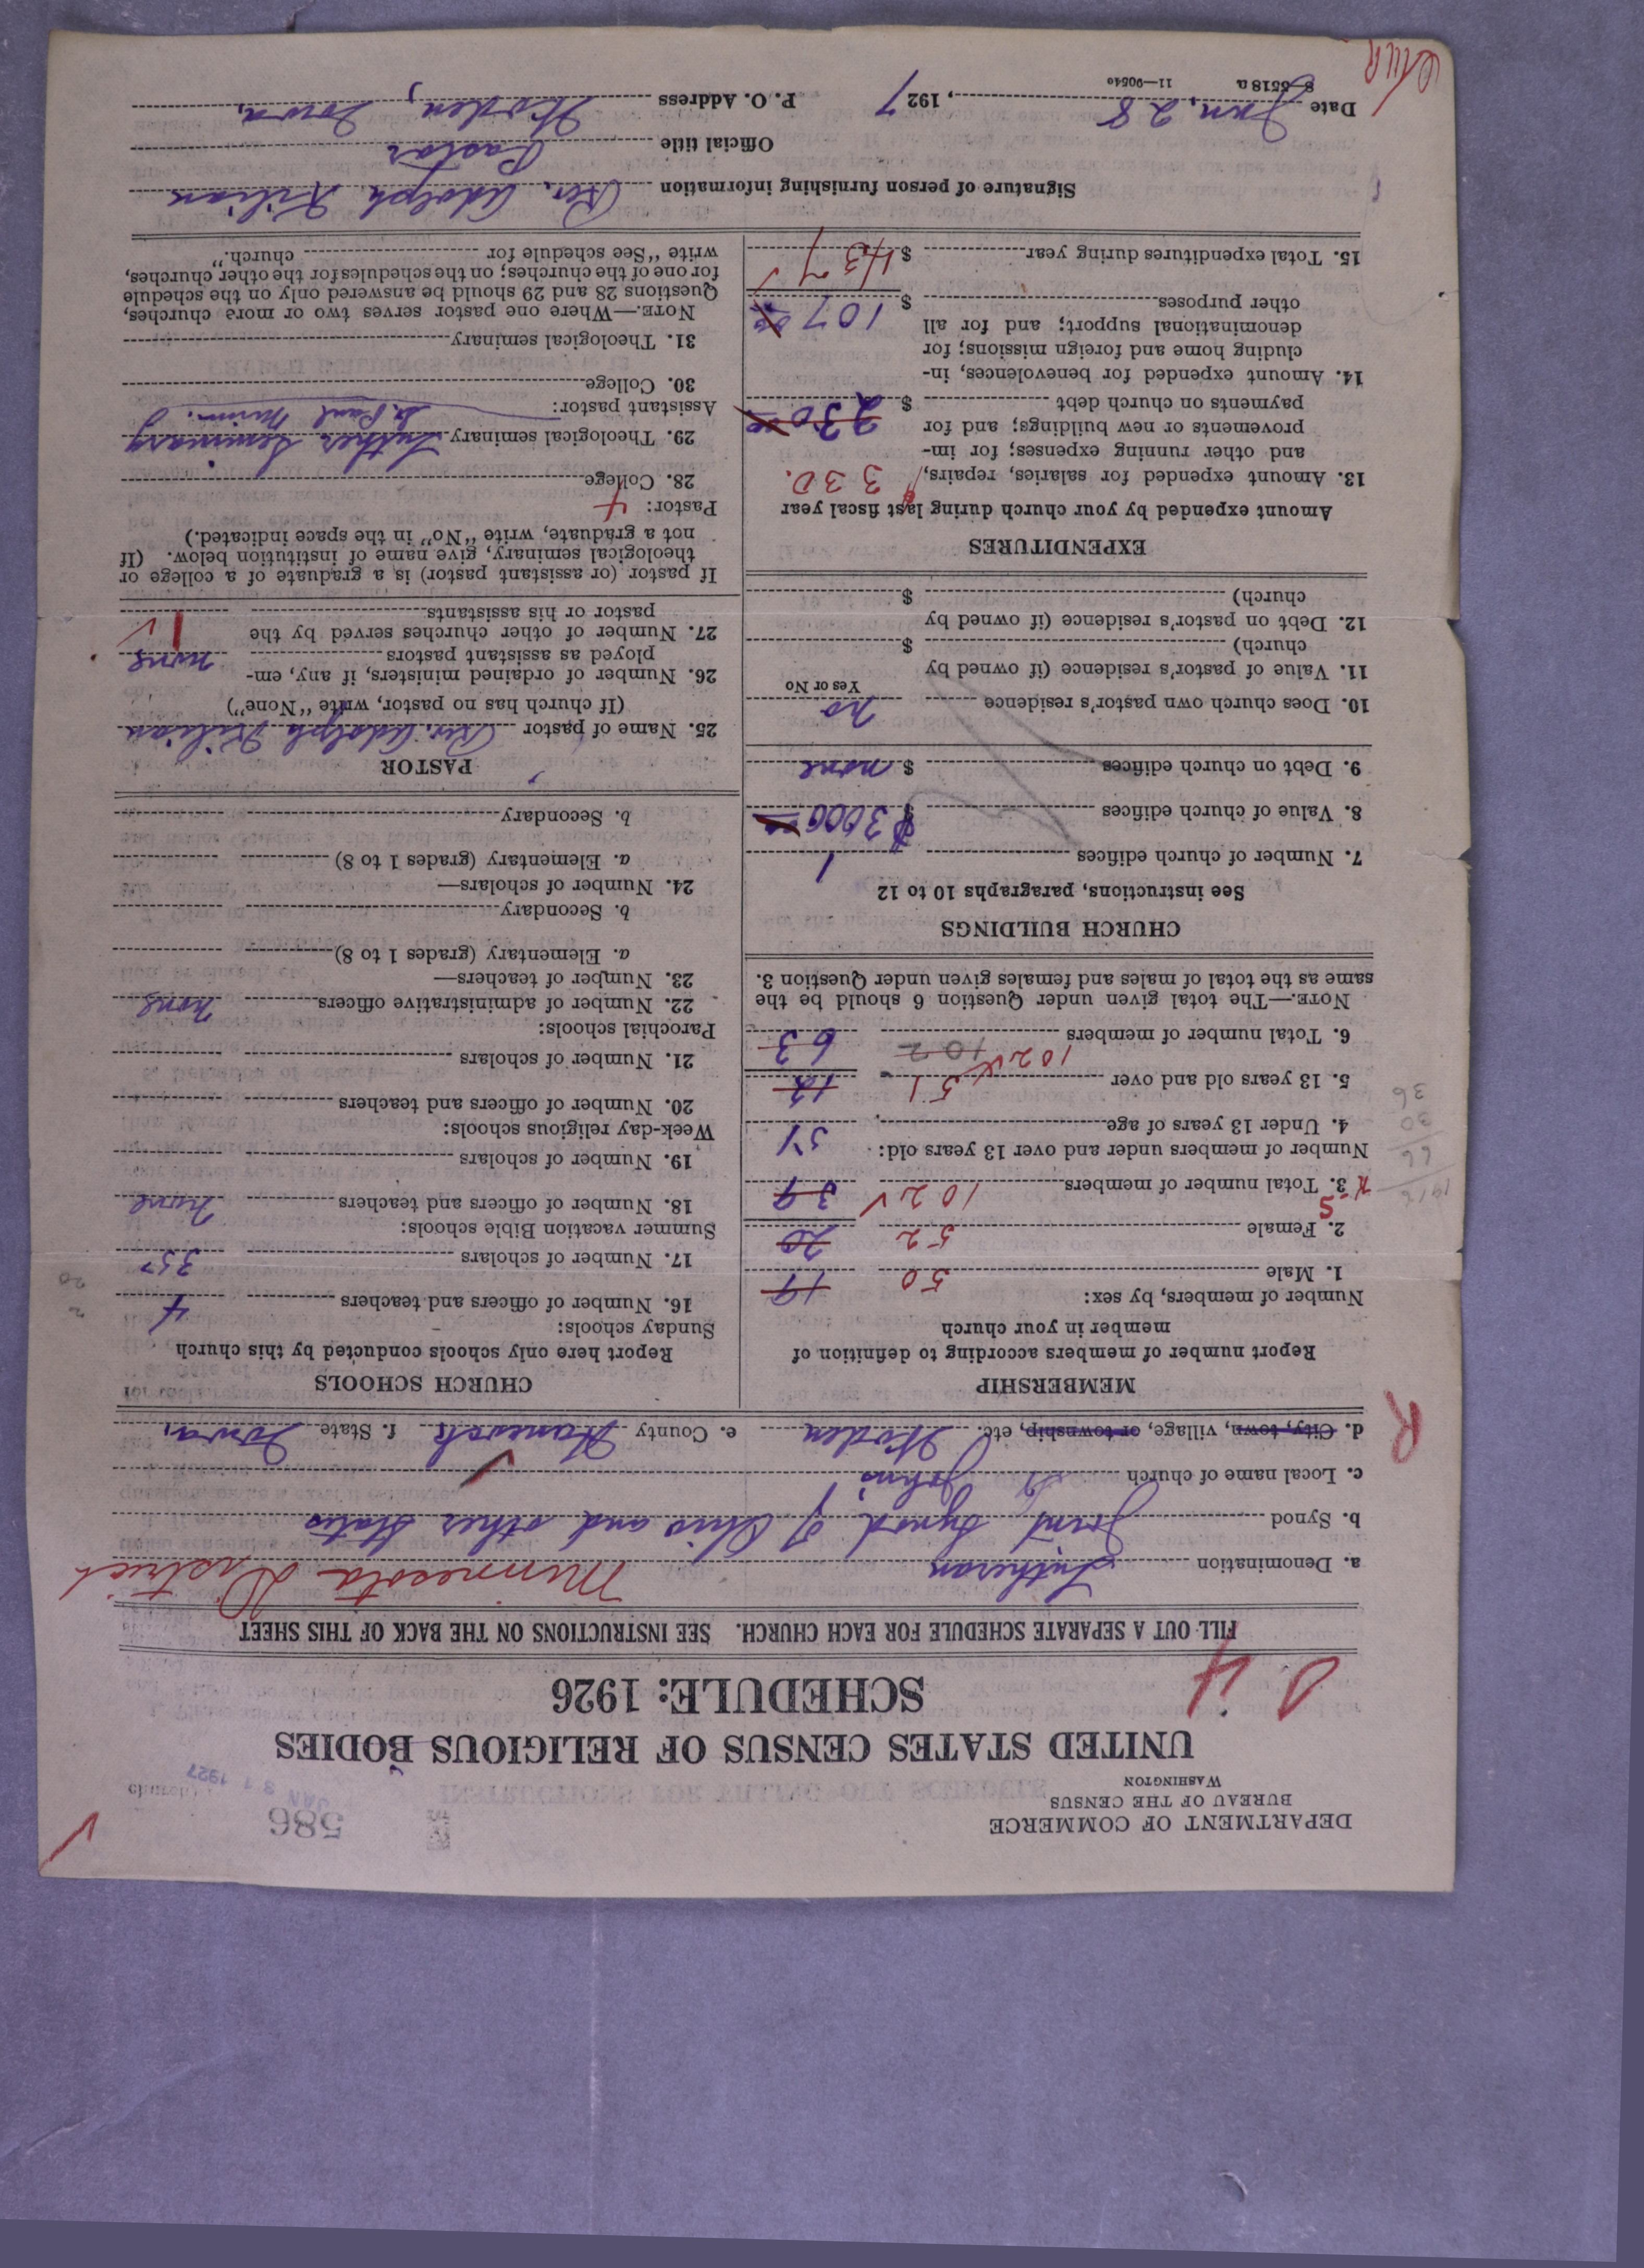 DEPARTMENT OF COMMERCE
BUREAU OF THE CENSUS
WASHINGTON
586
JAN 31 1927
UNITED STATES CENSUS OF RELIGIOUS BODIES
SCHEDULE: 1926
FILL OUT A SEPARATE SCHEDULE FOR EACH CHURCH. SEE INSTRUCTIONS ON THE BACK OF THIS SHEET
a. Denomination Lutheran Minnesota District
b. Synod Joint Synod of Ohio and other States
c. Local name of church St. Johns
d. City, town, village, or township, etc. Woden e. County Hancock f. State Iowa,
R
MEMBERSHIP
Report number of members according to definition of
member in your church
Number of members, by sex:
1. Male 50 19
2. Female 52 20
3. Total number of members 102 39
1916
66
30
36
Number of members under and over 13 years old:
4. Under 13 years of age 51
5. 13 years old and over 51 12
6. Total number of members 102 102 63
NOTE.—The total given under Question 6 should be the
same as the total of males and females given under Question 3.
CHURCH BUILDINGS
See instructions, paragraphs 10 to 12
7. Number of church edifices 1
8. Value of church edifices $3000
9. Debt on church edifices $ none
10. Does church own pastor's residence no
Yes or No
11. Value of pastor's residence (if owned by
church) $
12. Debt on pastor's residence (if owned by
church) $
EXPENDITURES
Amount expended by your church during last fiscal year
13. Amount expended for salaries, repairs, 330.
and other running expenses; for im-
provements or new buildings; and for
payments on church debt $ 230
14. Amount expended for benevolences, in-
cluding home and foreign missions; for
denominational support; and for all
other purposes $ 107
15. Total expenditures during year $ 437
CHURCH SCHOOLS
Report here only schools conducted by this church
Sunday schools:
16. Number of officers and teachers 4
17. Number of scholars 35
2
20
Summer vacation Bible schools:
18. Number of officers and teachers none
19. Number of scholars
Week-day religious schools:
20. Number of officers and teachers
21. Number of scholars
Parochial schools:
22. Number of administrative officers none
23. Number of teachers—
a. Elementary (grades 1 to 8)
b. Secondary
24. Number of scholars—
a. Elementary (grades 1 to 8)
b. Secondary
PASTOR
25. Name of pastor Rev. Adolph Kilian
(If church has no pastor, write "None")
26. Number of ordained ministers, if any, em-
ployed as assistant pastors none
27. Number of other churches served by the
pastor or his assistants 1
If pastor (or assistant pastor) is a graduate of a college or
theological seminary, give name of institution below. (If
not a graduate, write "No" in the space indicated.)
Pastor:
28. College
29. Theological seminary Luther Seminary
St. Paul Minn.
Assistant pastor:
30. College
31. Theological seminary
NOTE.—Where one pastor serves two or more churches,
Questions 28 and 29 should be answered only on the schedule
for one of the churches; on the schedules for the other churches,
write "See schedule for church."
Signature of person furnishing information Rev. Adolph Kilian
Official title Pastor
Date Jan. 28, 1927 P. O. Address Woden, Iowa,
8—5518 a 11—9054